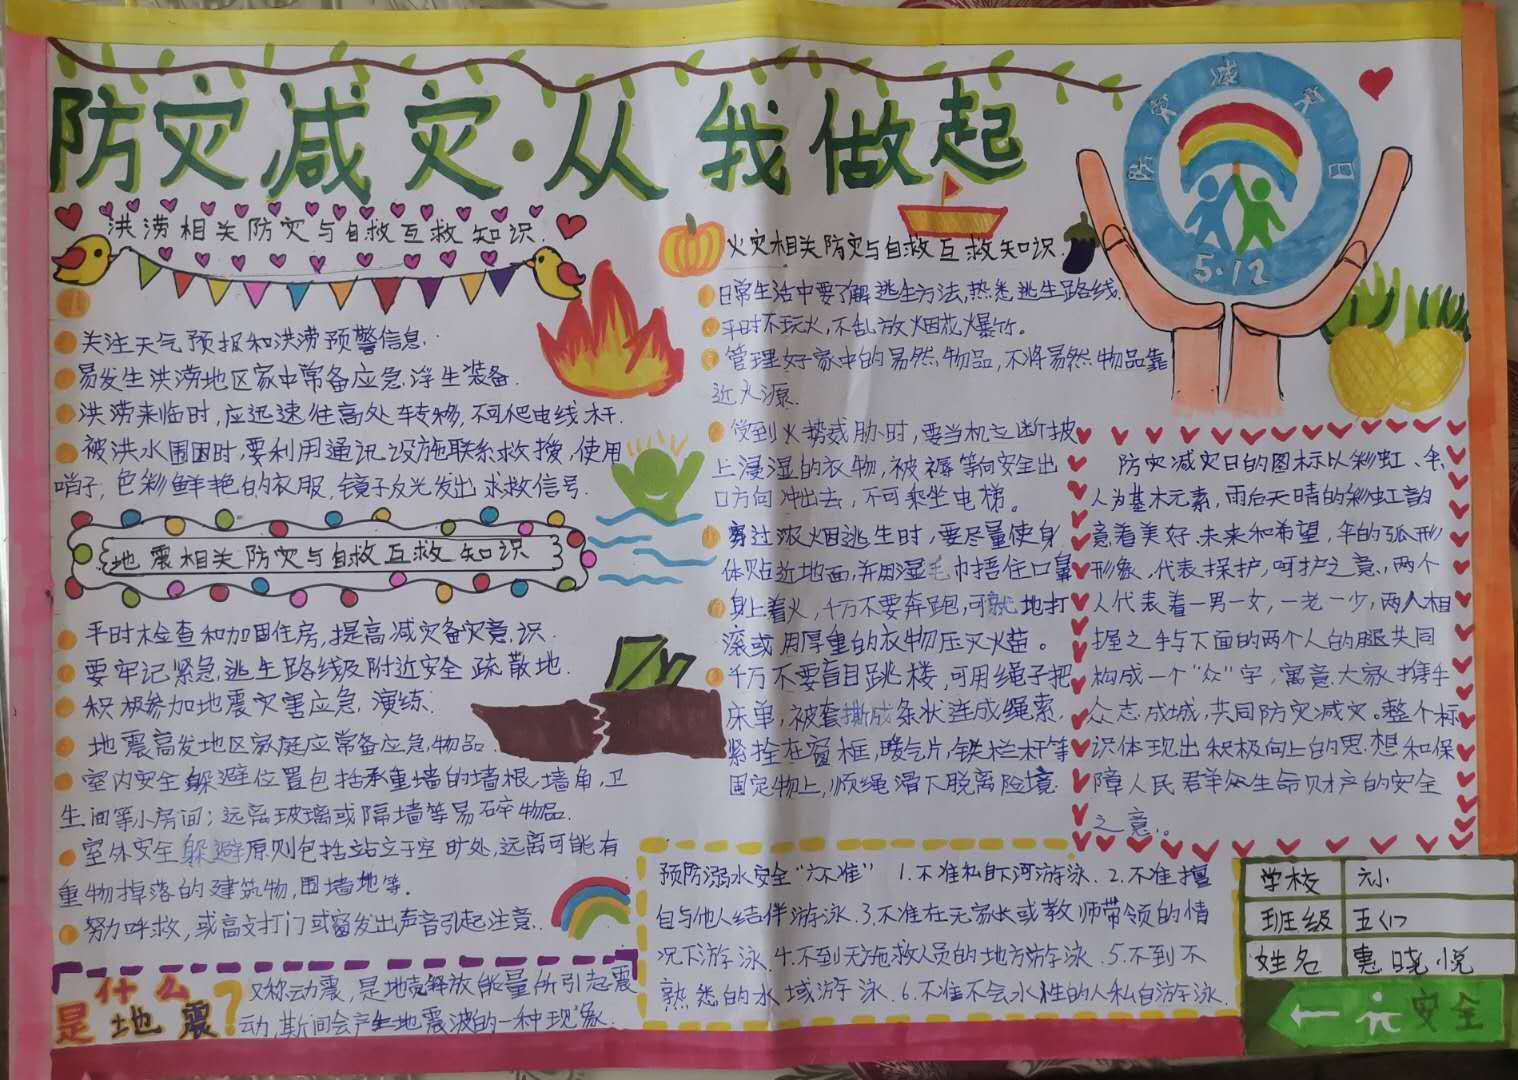 防灾减灾·从我做起
洪涝相关防灾与自救互救知识.
关注天气预报和洪涝预警信息.
易发生洪涝地区家中常备应急浮生装备.
洪涝来临时,应迅速往高处转移,不可爬电线杆.
被洪水围困时,要利用通讯设施联系救援,使用
哨子,色彩鲜艳的衣服,镜子反光发出求救信号.
地震相关防灾与自救互救知识
平时检查和加固住房,提高减灾备灾意识.
要牢记紧急逃生路线及附近安全疏散地.
积极参加地震灾害应急演练.
地震高发地区家庭应常备应急物品.
室内安全躲避位置包括承重墙的墙根,墙角,卫
生间等小房间;远离玻璃或隔墙等易碎物品.
室外安全躲避原则包括站立于空旷处,远离可能有
重物掉落的建筑物,围墙地等.
努力呼救,或高攴打门或窗发出声音引起注意.
什么
是地震?
又称动震,是地壳解放能量所引起震
动,其斯间会产生地震波的一种现象.
火灾相关防灾与自救互救知识.
日常生活中要了解逃生方法,熟悉逃生路线.
平时不玩火,不乱放烟花爆竹。
管理好家中的易然物品,不将易然物品靠
近火源.
受到火势威胁时,要当机立断披
上浸湿的衣物,被褥等向安全出
口方向冲出去,不可乘坐电梯。
穿过浓烟逃生时,要尽量使身
体贴近地面,并用湿毛巾捂住口鼻
身上着火,千万不要奔跑,可就地打
滚或用厚重的衣物压灭火苗。
千万不要盲目跳楼,可用绳子把
床单,被套撕成条状连成绳索.
紧拴在窗框,暖气片,铁栏杆等
固定物上,顺绳滑下脱离险境.
防灾减灾日
5·12
防灾减灾日的图标以彩虹、伞、
人为基木元素,雨后天晴的彩虹韵
意着美好.未来和希望,伞的弧形
形象.代表探护,呵护之意,两个
人代表着一男一女,一老一少,两人相
握之手与下面的两个人的腿共同
构成一个“众”字,寓意大家携手
众志成城,共同防灾减灾。整个标
识体现出积极向上的思想和保
障人民群众生命财产的安全
之意.。
预防溺水安全“六不准” 1.不准私自下河游泳.2.不准擅
自与他人结伴游泳.3.不准在无家长或教师带领的情
况下游泳.4.不到无施救人员的地方游泳.5.不到不
熟悉的水域游泳.6.不准不会水性的人私自游泳.
学校 六小
班级
姓名 惠晓悦
安全